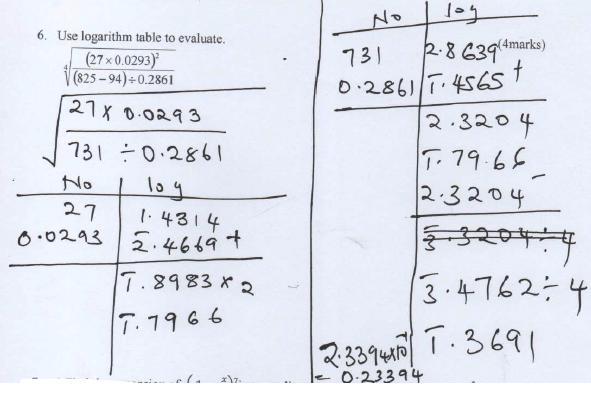 6. Use logarithm table to evaluate.
4√((27 × 0.0293)² / (825 – 94) ÷ 0.2861) (4marks)
√(27 × 0.0293 / 731 ÷ 0.2861)
No | log
27 | 1.4314
0.0293 | 2̄.4669 +
1̄.8983 × 2
1̄.7966
No | log
731 | 2.8639
0.2861 | 1̄.4565 +
2.3204
1̄.7966
2.3204 -
3̄.3204 ÷ 4
3̄.4762 ÷ 4
2.3394×10⁻¹ | 1̄.3691
= 0.23394